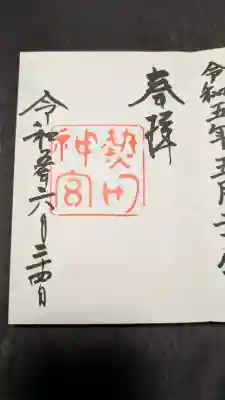 令和五年五月
奉拝
熱田
神宮
令和五年六月二十四日